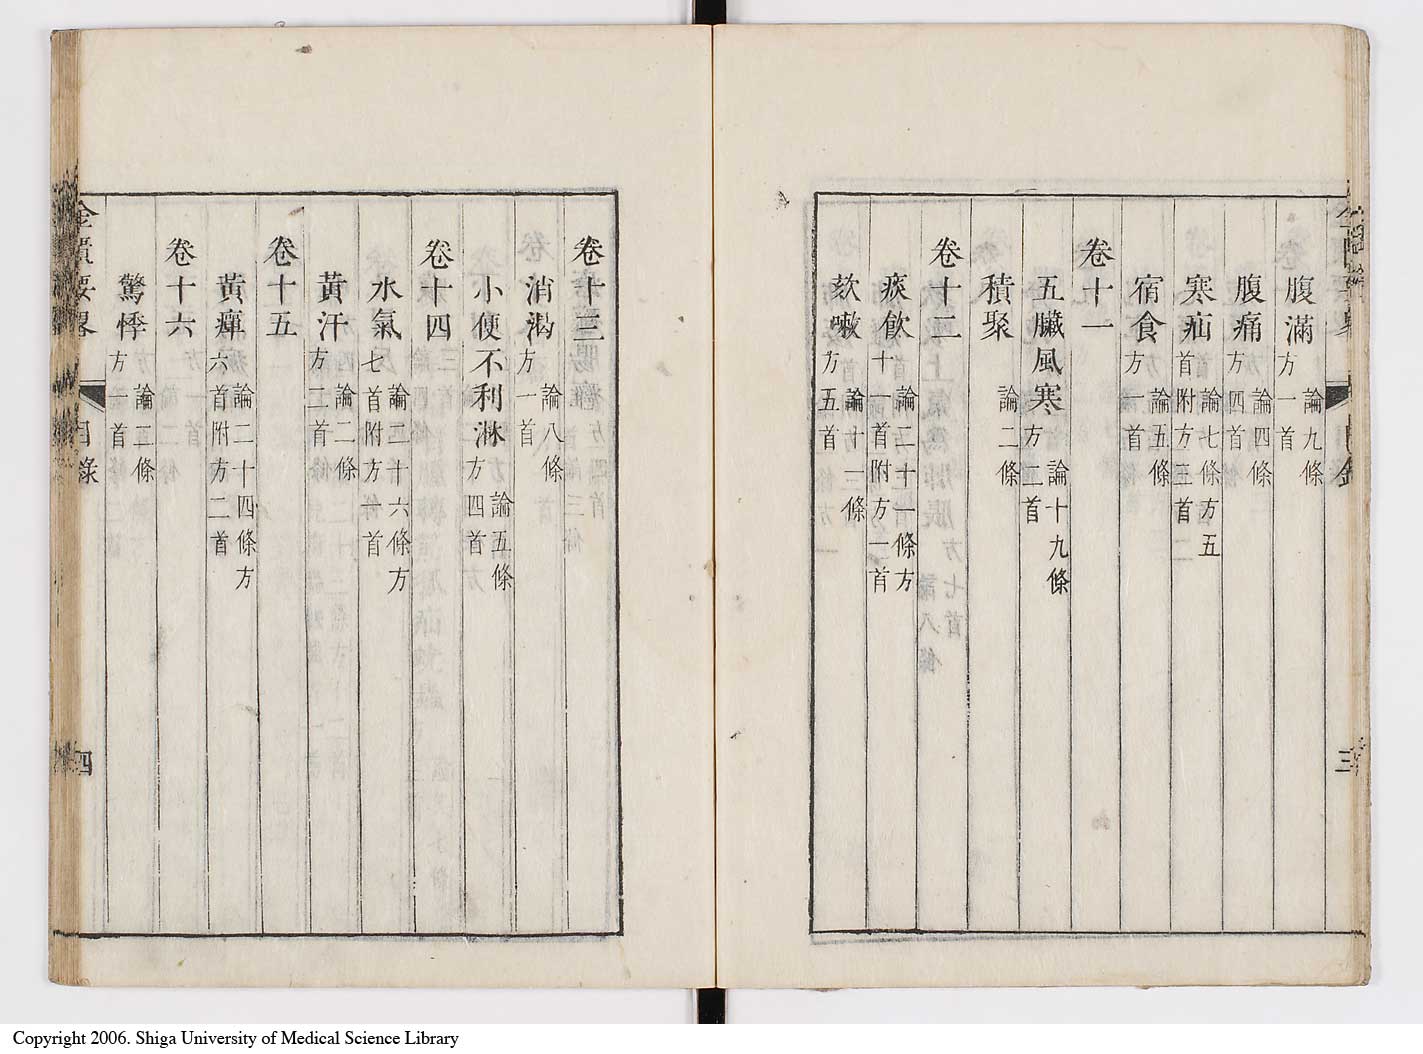 腹滿 論九條方一首
腹痛 論四條方四首
寒疝 論七條方五首附方三首
宿食 論五條方一首
卷十一
五臟風寒 論十九條方二首
積聚 論二條
卷十二
痰飲 論二十一條方十一首附方一首
欬嗽 論十三條方五首
三
卷十三
消渴 論八條方一首
小便不利淋 論五條方四首
卷十四
水氣 論三十六條方七首附方一首
黃汗 論二條方二首
卷十五
黃癉 論二十四條方六首附方二首
卷十六
驚悸 論三條方一首
金匱要畧 目錄
四
Copyright 2006. Shiga University of Medical Science Library